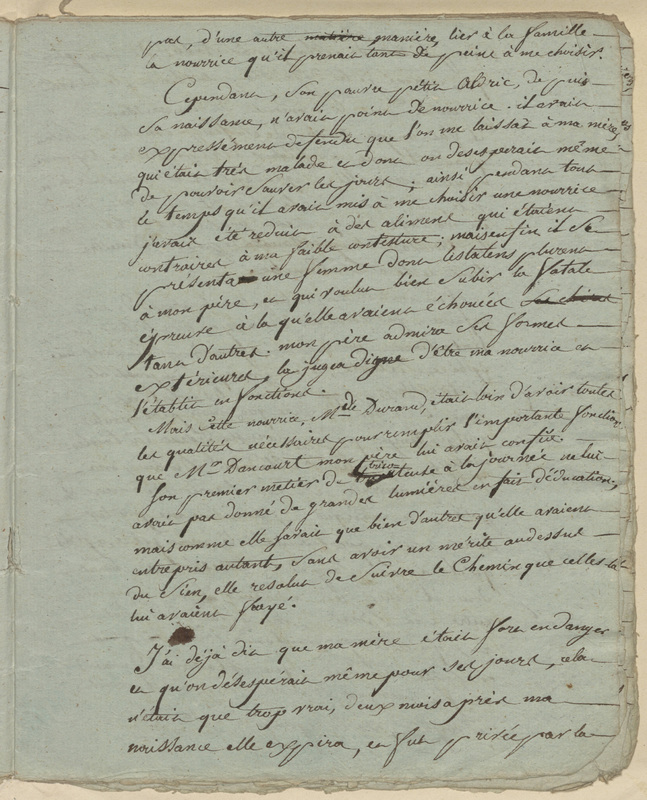 pas, d'une autre matière manière, lier à la famille
la nourrice qu'il prenait tant de peine à me choisir.
Cependant, son pauvre petit Aldric, depuis
sa naissance, n'avait point de nourrice. il avait
expressément defendu que l'on me laissat à ma mère,
qui était très malade et dont on desesperait même
de pouvoir sauver les jours; ainsi pendant tout
le temps qu'il avait mis à me choisir une nourrice
j'avais été reduit à des aliments qui étaient
contraires à ma faible contexture; mais enfin il se
présenta une femme dont les talens plurent
à mon père, et qui voulut bien subir la fatale
épreuve à la qu'elle avaient échouées
tant d'autres. mon père admira ses formes
extérieures, la jugea digne d'être ma nourrice et
l'établit en fonctions.
Mais cette nourrice, Mde Durand, était loin d'avoir toutes
les qualités nécessaires pour remplir l'importante fonction
que Mr Dancourt mon père lui avait confié.
Son premier metier de tricoteuse à la journée ne lui
avait pas donné de grandes lumières en fait d'éducation,
mais comme elle savait que bien d'autres qu'elle avaient
entrepris autant, sans avoir un mérite audessus
du sien, elle resolut de suivre le chemin que celles là
lui avaient frayé.
J'ai déjà dit que ma mère était fort en danger
et qu'on désespérait même pour ses jours, cela
n'était que trop vrai, deux mois après ma
naissance elle expira, et fut privée par la